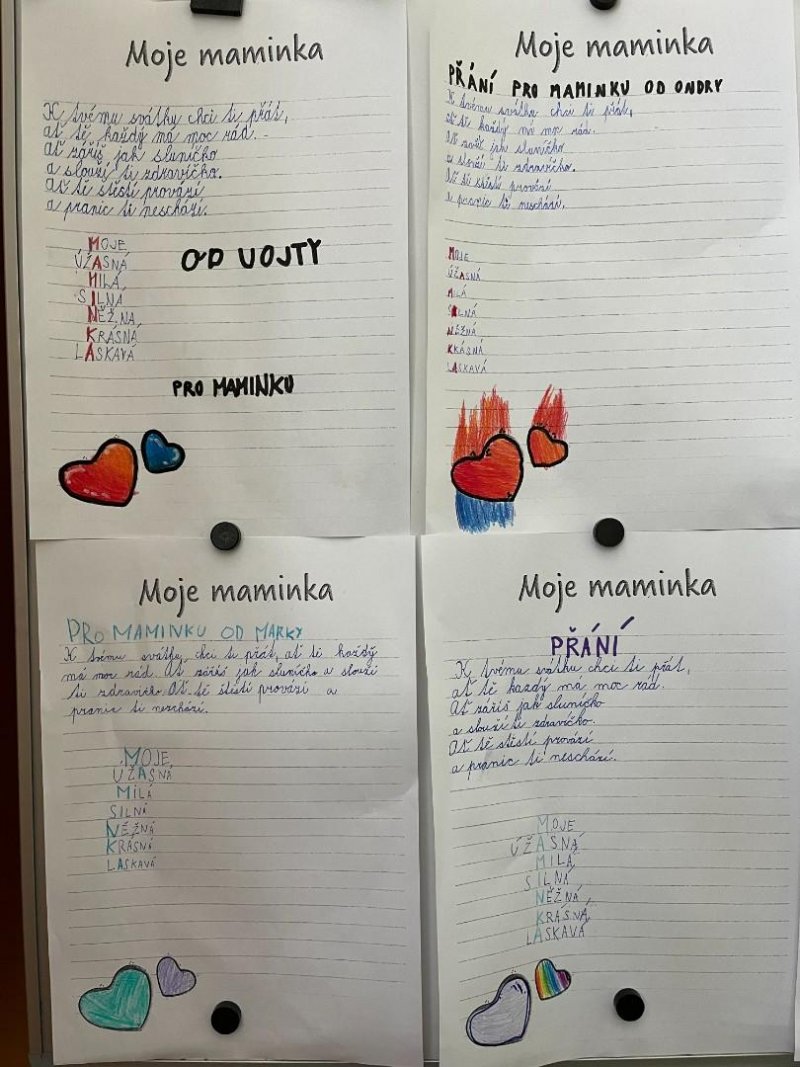 Moje maminka
K tvému svátku chci ti přát,
ať tě každý má moc rád.
Ať záříš jak sluníčko
a slouží ti zdravíčko.
Ať tě štěstí provází
a pranic ti neschází.
MOJE
ÚŽASNÁ
MILÁ
SILNÁ
NĚŽNÁ
KRÁSNÁ
LASKAVÁ
OD VOJTY
PRO MAMINKU
Moje maminka
PŘÁNÍ PRO MAMINKU OD ONDRY
K tvému svátku chci ti přát,
ať tě každý má moc rád.
Ať jak sluníčko
a slouží ti zdravíčko.
Ať tě štěstí provází
a pranic ti neschází.
MOJE
ÚŽASNÁ
MILÁ
SILNÁ
NĚŽNÁ
KRÁSNÁ
LASKAVÁ
Moje maminka
PRO MAMINKU OD MARKY
K tvému svátku chci ti přát, ať tě každý
má moc rád. Ať záříš jak sluníčko a slouží
ti zdravíčko. Ať tě štěstí provází a
pranic ti neschází.
MOJE
ÚŽASNÁ
MILÁ
SILNÁ
NĚŽNÁ
KRÁSNÁ
LASKAVÁ
Moje maminka
PŘÁNÍ
K tvému svátku chci ti přát,
ať tě kazdý má moc rád.
Ať záříš jak sluníčko
a slouží ti zdravíčko.
Ať tě stěstí provází
a pranic ti neschází.
MOJE
ÚŽASNÁ
MILÁ
SILNÁ
NĚŽNÁ
KRÁSNÁ
LASKAVÁ